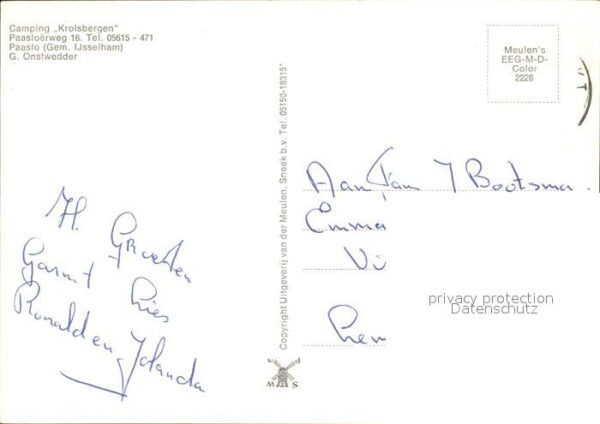 Camping „Krolsbergen"
Paasloërweg 16. Tel. 05615 - 471
Paaslo (Gem. IJsselham)
G. Onstwedder
Meulen's
EEG-M-D-
Color
2228
Copyright Uitgeverij van der Meulen, Sneek b.v. Tel. 05150-18315*
Aan Fam Y Bootsma.
Emma
H. Groeten
Garmt Lies
Ronald en Jolanda
privacy protection
Datenschutz
v d
M S